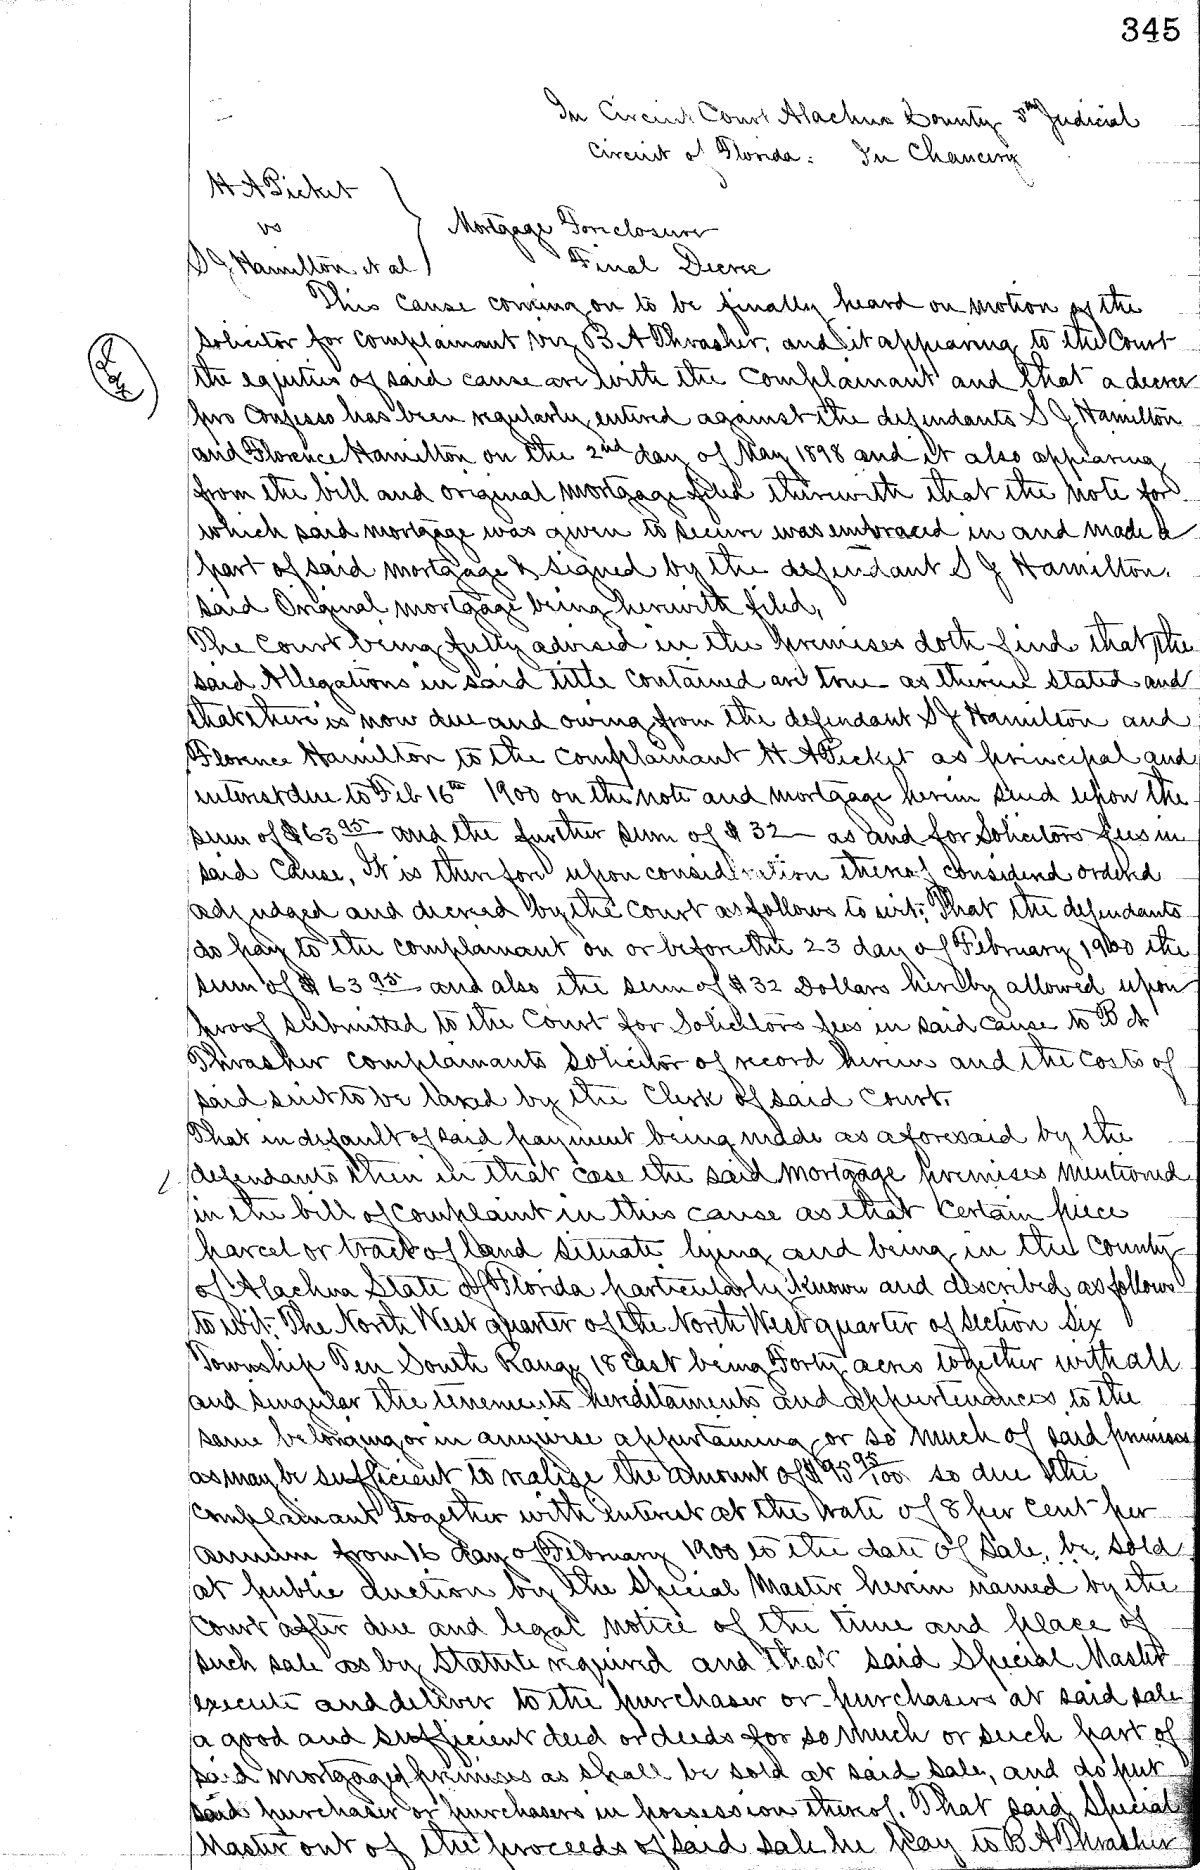 345
In Circuit Court Alachua County 5th Judicial
Circuit of Florida. In Chancery
H A Picket
vs
S J Hamilton et al
Mortgage Foreclosure
Final Decree
This cause coming on to be finally heard on motion of the
solicitor for complainant viz B A Thrasher, and it appearing to the Court
the equities of said cause are with the Complainant and that a decree
pro Confesso has been regularly entered against the defendants S J Hamilton
and Florence Hamilton on the 2nd day of May 1898 and it also appearing
from the bill and original mortgage filed therewith that the note for
which said mortgage was given to secure was embraced in and made a
part of said mortgage & signed by the defendant S J Hamilton.
said Original mortgage being herewith filed,
The Court being fully advised in the premises doth find that the
said Allegations in said title contained are true as therein stated and
that there is now due and owing from the defendant S J Hamilton and
Florence Hamilton to the complainant H A Picket as principal and
interest due to Feb 16th 1900 on the note and mortgage herein sued upon the
sum of $63 95 and the further sum of $32 as and for Solicitors fees in
said Cause, It is therefore upon consideration thereof considered ordered
adjudged and decreed by the Court as follows to wit: That the defendants
do pay to the complainant on or before the 23 day of February 1900 the
sum of $63 95 and also the sum of $32 Dollars hereby allowed upon
proof submitted to the Court for Solicitors fees in said cause to B A
Thrasher complainants Solicitor of record herein and the costs of
said suit to be taxed by the Clerk of said Court.
That in default of said payment being made as aforesaid by the
defendants then in that case the said mortgage premises mentioned
in the bill of complaint in this cause as that certain piece
parcel or tract of land situate lying and being in the county
of Alachua State of Florida particularly known and described as follows
to wit: The North West quarter of the North West quarter of section Six
Township Ten South Range 18 East being Forty acres together with all
and singular the tenements hereditaments and appurtenances to the
same belonging or in anywise appertaining or so much of said premises
as may be sufficient to realize the amount of $95 95/100 so due the
complainant together with interest at the rate of 8 per cent per
annum from 16 day of February 1900 to the date of Sale, be, sold
at public auction by the Special Master herein named by the
Court after due and legal notice of the time and place of
such sale as by Statute required and that said Special Master
execute and deliver to the purchaser or purchasers at said sale
a good and sufficient deed or deeds for so much or such part of
said mortgaged premises as shall be sold at said sale, and do put
said purchaser or purchasers in possession thereof. That said Special
Master out of the proceeds of said sale he pay to B A Thrasher